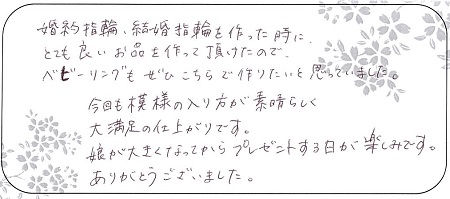 婚約指輪、結婚指輪を作った時に、
とても良いお品を作って頂けたので、
ベビーリングもぜひこちらで作りたいと思っていました。
今回も模様の入り方が素晴らしく
大満足の仕上がりです。
娘が大きくなってからプレゼントする日が楽しみです。
ありがとうございました。